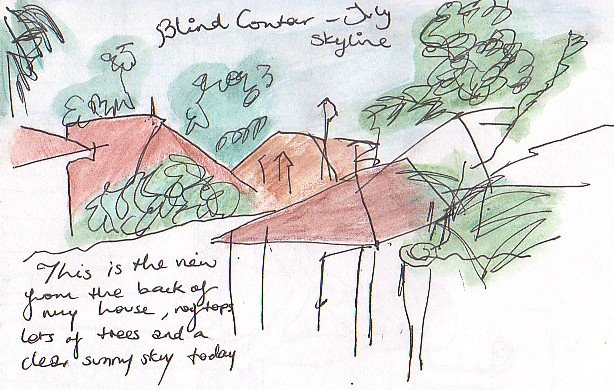 Blind Contor - July
skyline
This is the view
from the back of
my house, rooftops
lots of trees and a
clear sunny sky today